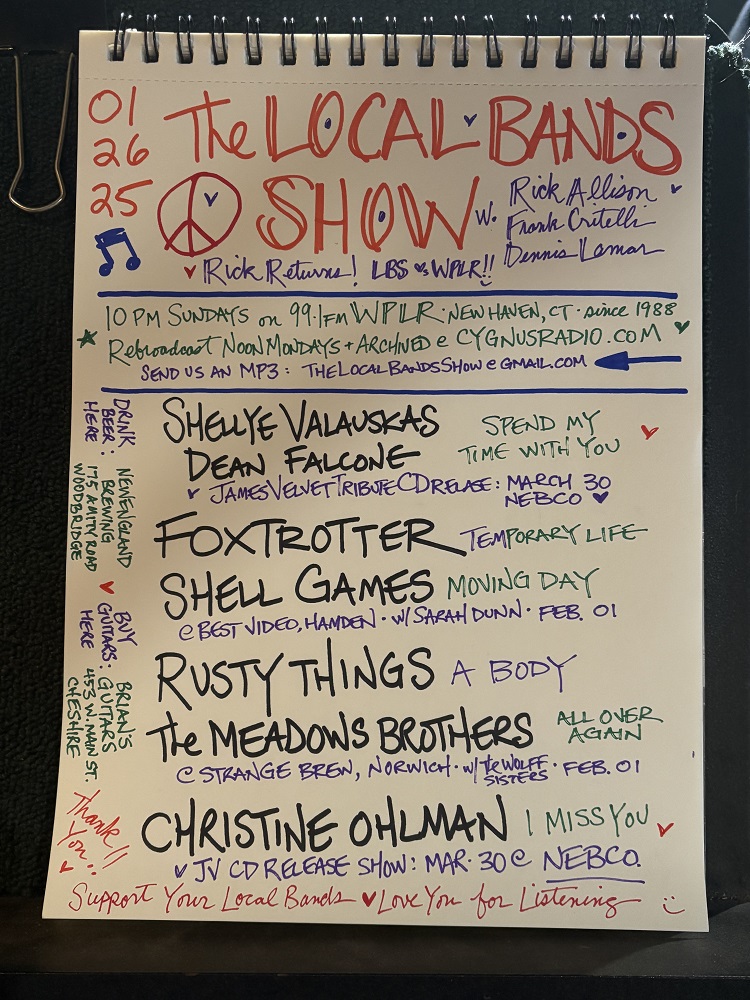 01
26
25
The LOCAL BANDS
SHOW
w. Rick Allison
Frank Critelli
Dennis Lamar
Rick Returns! LBS WPLR!!
10 PM SUNDAYS on 99.1 FM WPLR · NEW HAVEN, CT · since 1988
Rebroadcast NOON MONDAYS + ARCHIVED @ CYGNUSRADIO.COM
SEND US AN MP3: THELOCALBANDSSHOW@GMAIL.COM
DRINK
BEER:
HERE
NEW ENGLAND
BREWING
175 AMITY ROAD
WOODBRIDGE
BUY
GUITARS:
HERE
BRIAN'S
GUITARS
453 W. MAIN ST.
CHESHIRE
Thank
You!!
SHELLYE VALAUSKAS
DEAN FALCONE
SPEND MY
TIME WITH YOU
JAMES VELVET TRIBUTE CD RELASE: MARCH 30
NEBCO
FOXTROTTER TEMPORARY LIFE
SHELL GAMES MOVING DAY
@ BEST VIDEO, HAMDEN · w/ SARAH DUNN · FEB. 01
RUSTY THINGS A BODY
The MEADOWS BROTHERS
ALL OVER
AGAIN
@ STRANGE BREW, NORWICH · w/ the WOLFF
SISTERS · FEB. 01
CHRISTINE OHLMAN I MISS YOU
JV CD RELEASE SHOW: MAR. 30 @ NEBCO.
Support Your Local Bands Love You for Listening